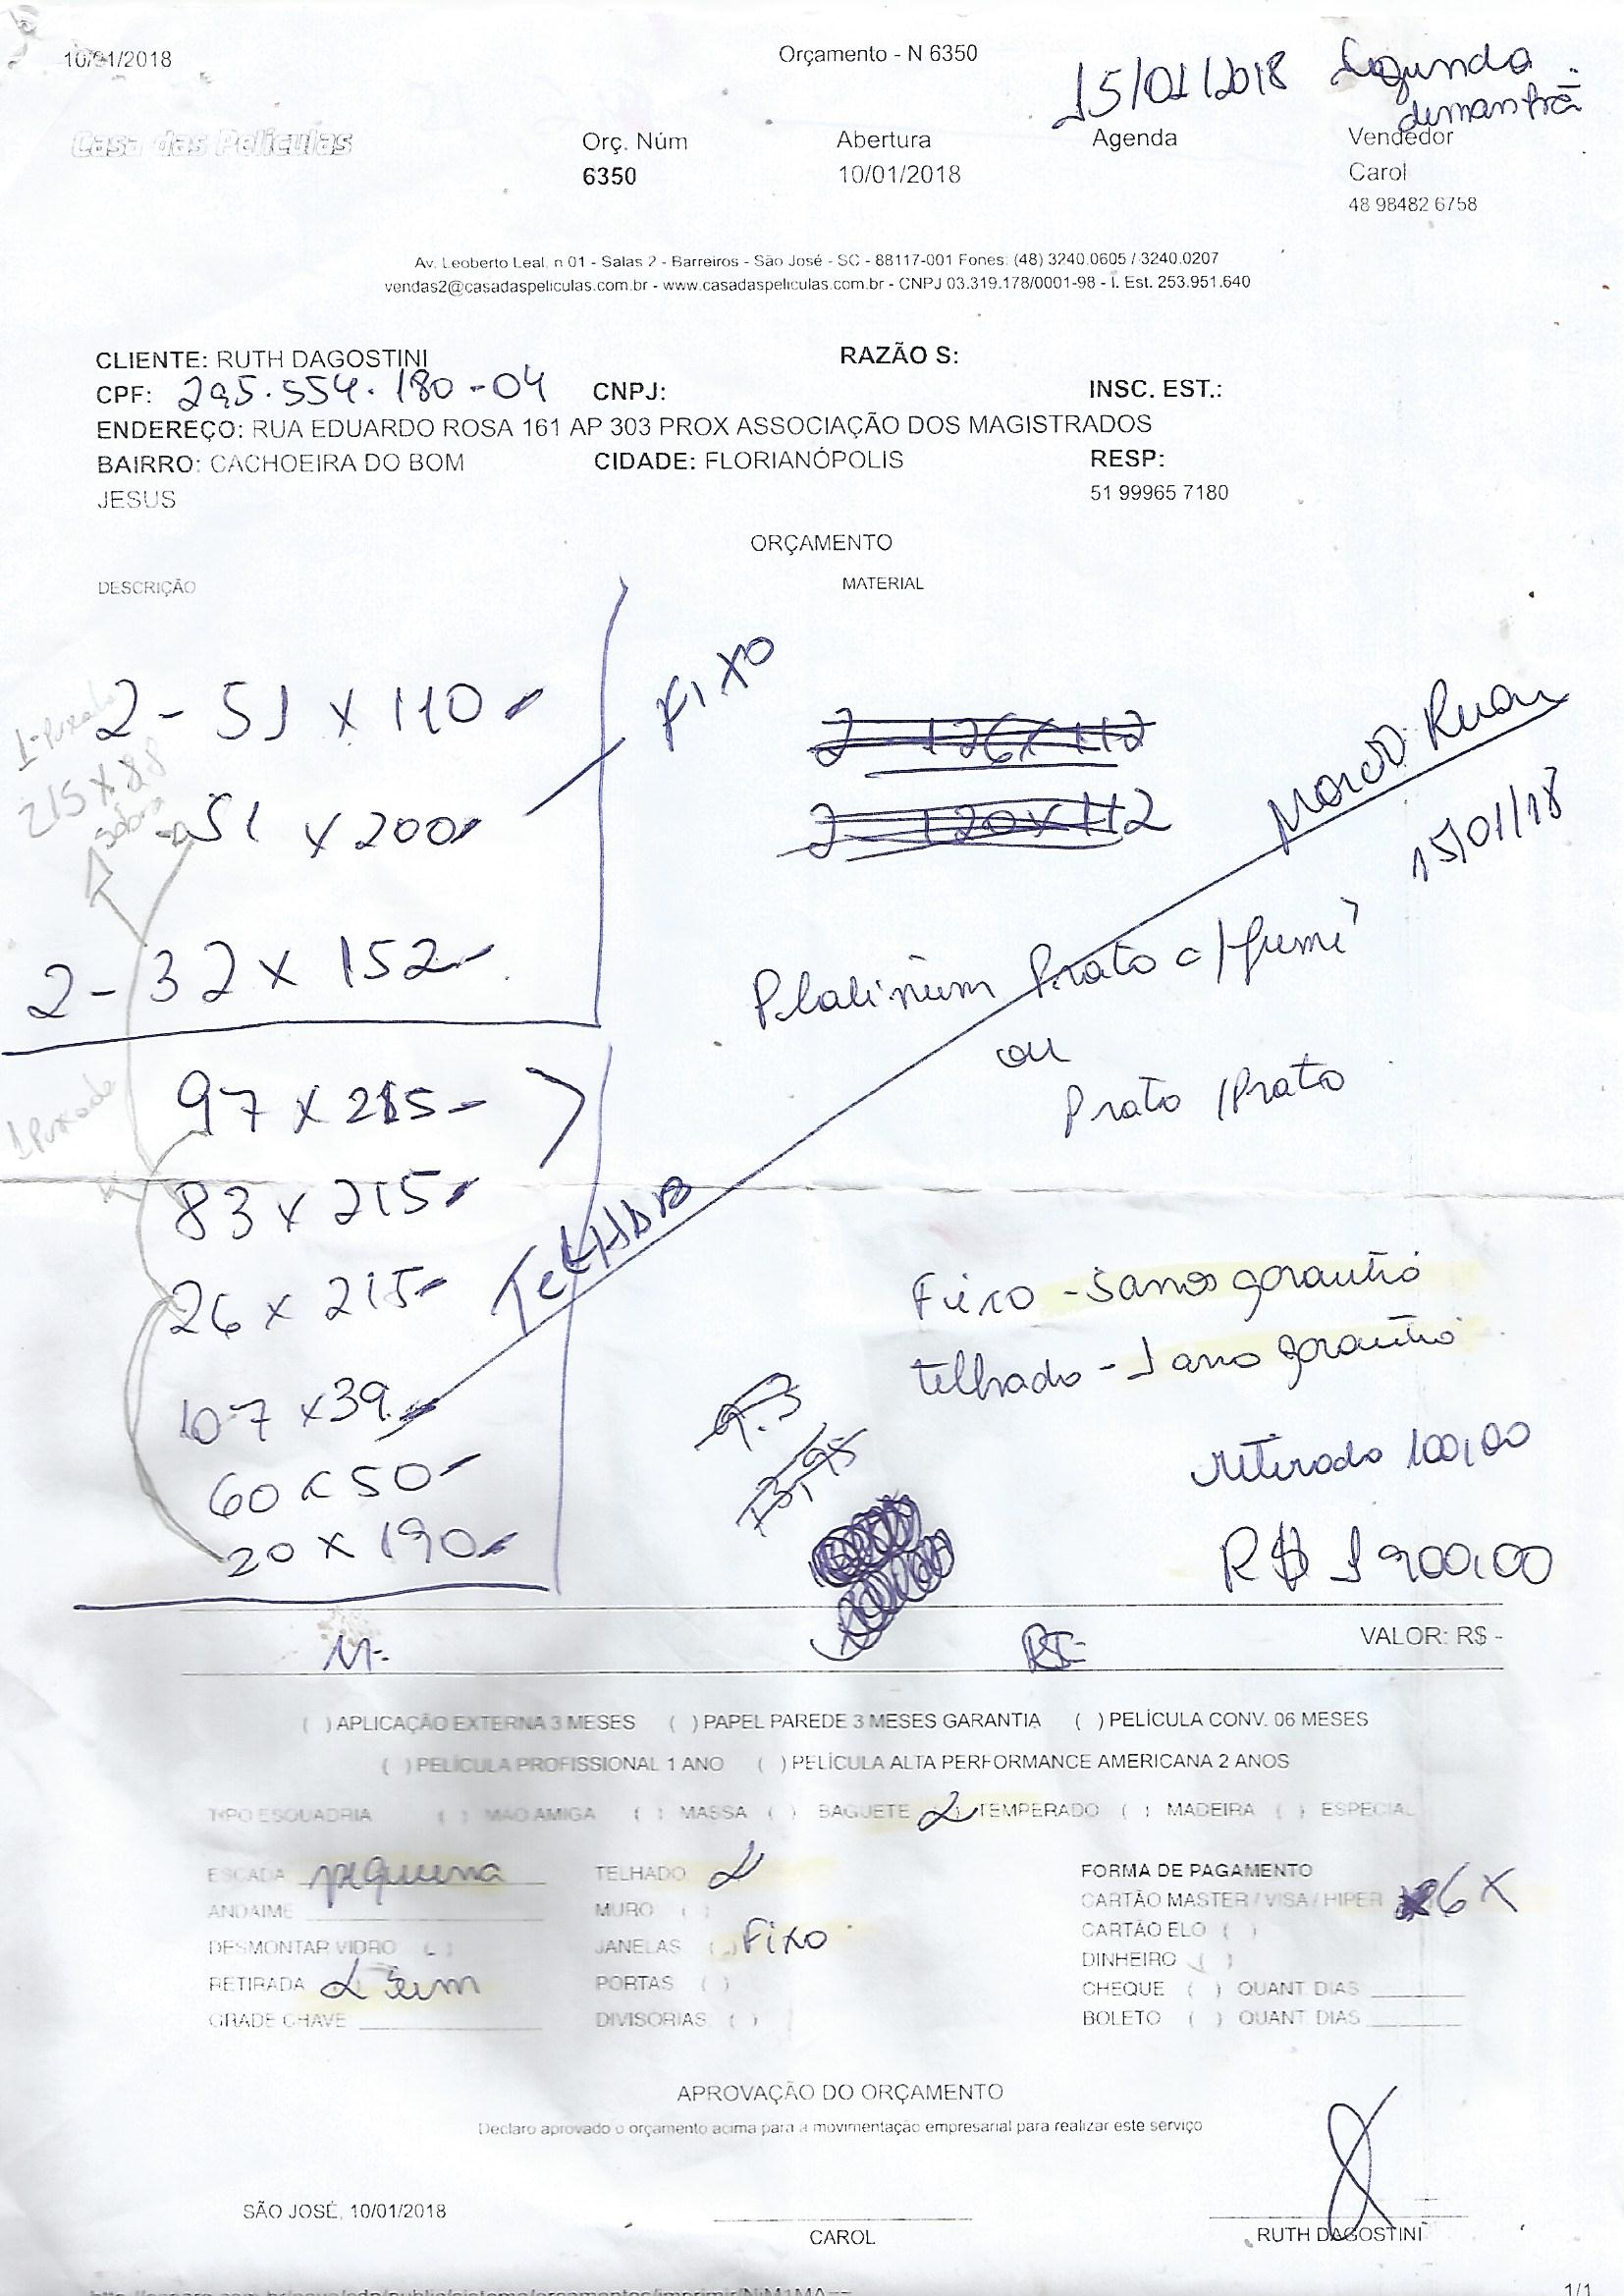 10/01/2018
Orçamento - N 6350
15/01/2018 Segunda
demanhã
Casa das Películas
Orç. Núm
Abertura
Agenda
Vendedor
6350
10/01/2018
Carol
48 98482 6758
Av. Leoberto Leal, n 01 - Salas 2 - Barreiros - São José - SC - 88117-001 Fones: (48) 3240.0605 / 3240.0207
vendas2@casadaspeliculas.com.br - www.casadaspeliculas.com.br - CNPJ 03.319.178/0001-98 - I. Est. 253.951.640
CLIENTE: RUTH DAGOSTINI
RAZÃO S:
CPF: 295.554.180-04
CNPJ:
INSC. EST.:
ENDEREÇO: RUA EDUARDO ROSA 161 AP 303 PROX ASSOCIAÇÃO DOS MAGISTRADOS
BAIRRO: CACHOEIRA DO BOM
JESUS
CIDADE: FLORIANÓPOLIS
RESP:
51 99965 7180
ORÇAMENTO
DESCRIÇÃO
MATERIAL
2 - 51 x 110
FIXO
2 - 126 x 112
215 x 88
sobra
51 x 200
2 - 120 x 112
Ruan
15/01/18
2 - 32 x 152
Platinum Prata c/ fumê
ou
Prata / Prata
97 x 215
1 Puxada
83 x 215
TELHADO
26 x 215
Fixo - 5 anos garantia
telhado - 1 ano garantia
107 x 39
60 x 50
retirada 100,00
20 x 190
R$ 1900,00
M-
R$-
VALOR: R$ -
( ) APLICAÇÃO EXTERNA 3 MESES ( ) PAPEL PAREDE 3 MESES GARANTIA ( ) PELÍCULA CONV. 06 MESES
( ) PELÍCULA PROFISSIONAL 1 ANO ( ) PELÍCULA ALTA PERFORMANCE AMERICANA 2 ANOS
TIPO ESQUADRIA ( ) MÃO AMIGA ( ) MASSA ( ) BAGUETE ( ) TEMPERADO ( ) MADEIRA ( ) ESPECIAL
ESCADA pequena
TELHADO
FORMA DE PAGAMENTO
ANDAIME
MURO ( )
CARTÃO MASTER / VISA / HIPER 6X
DESMONTAR VIDRO ( )
JANELAS ( ) Fixo
CARTÃO ELO ( )
DINHEIRO ( )
RETIRADA sim
PORTAS ( )
CHEQUE ( ) QUANT. DIAS
GRADE CHAVE
DIVISÓRIAS ( )
BOLETO ( ) QUANT. DIAS
APROVAÇÃO DO ORÇAMENTO
Declaro aprovado o orçamento acima para a movimentação empresarial para realizar este serviço
SÃO JOSÉ, 10/01/2018
CAROL
RUTH DAGOSTINI
1/1